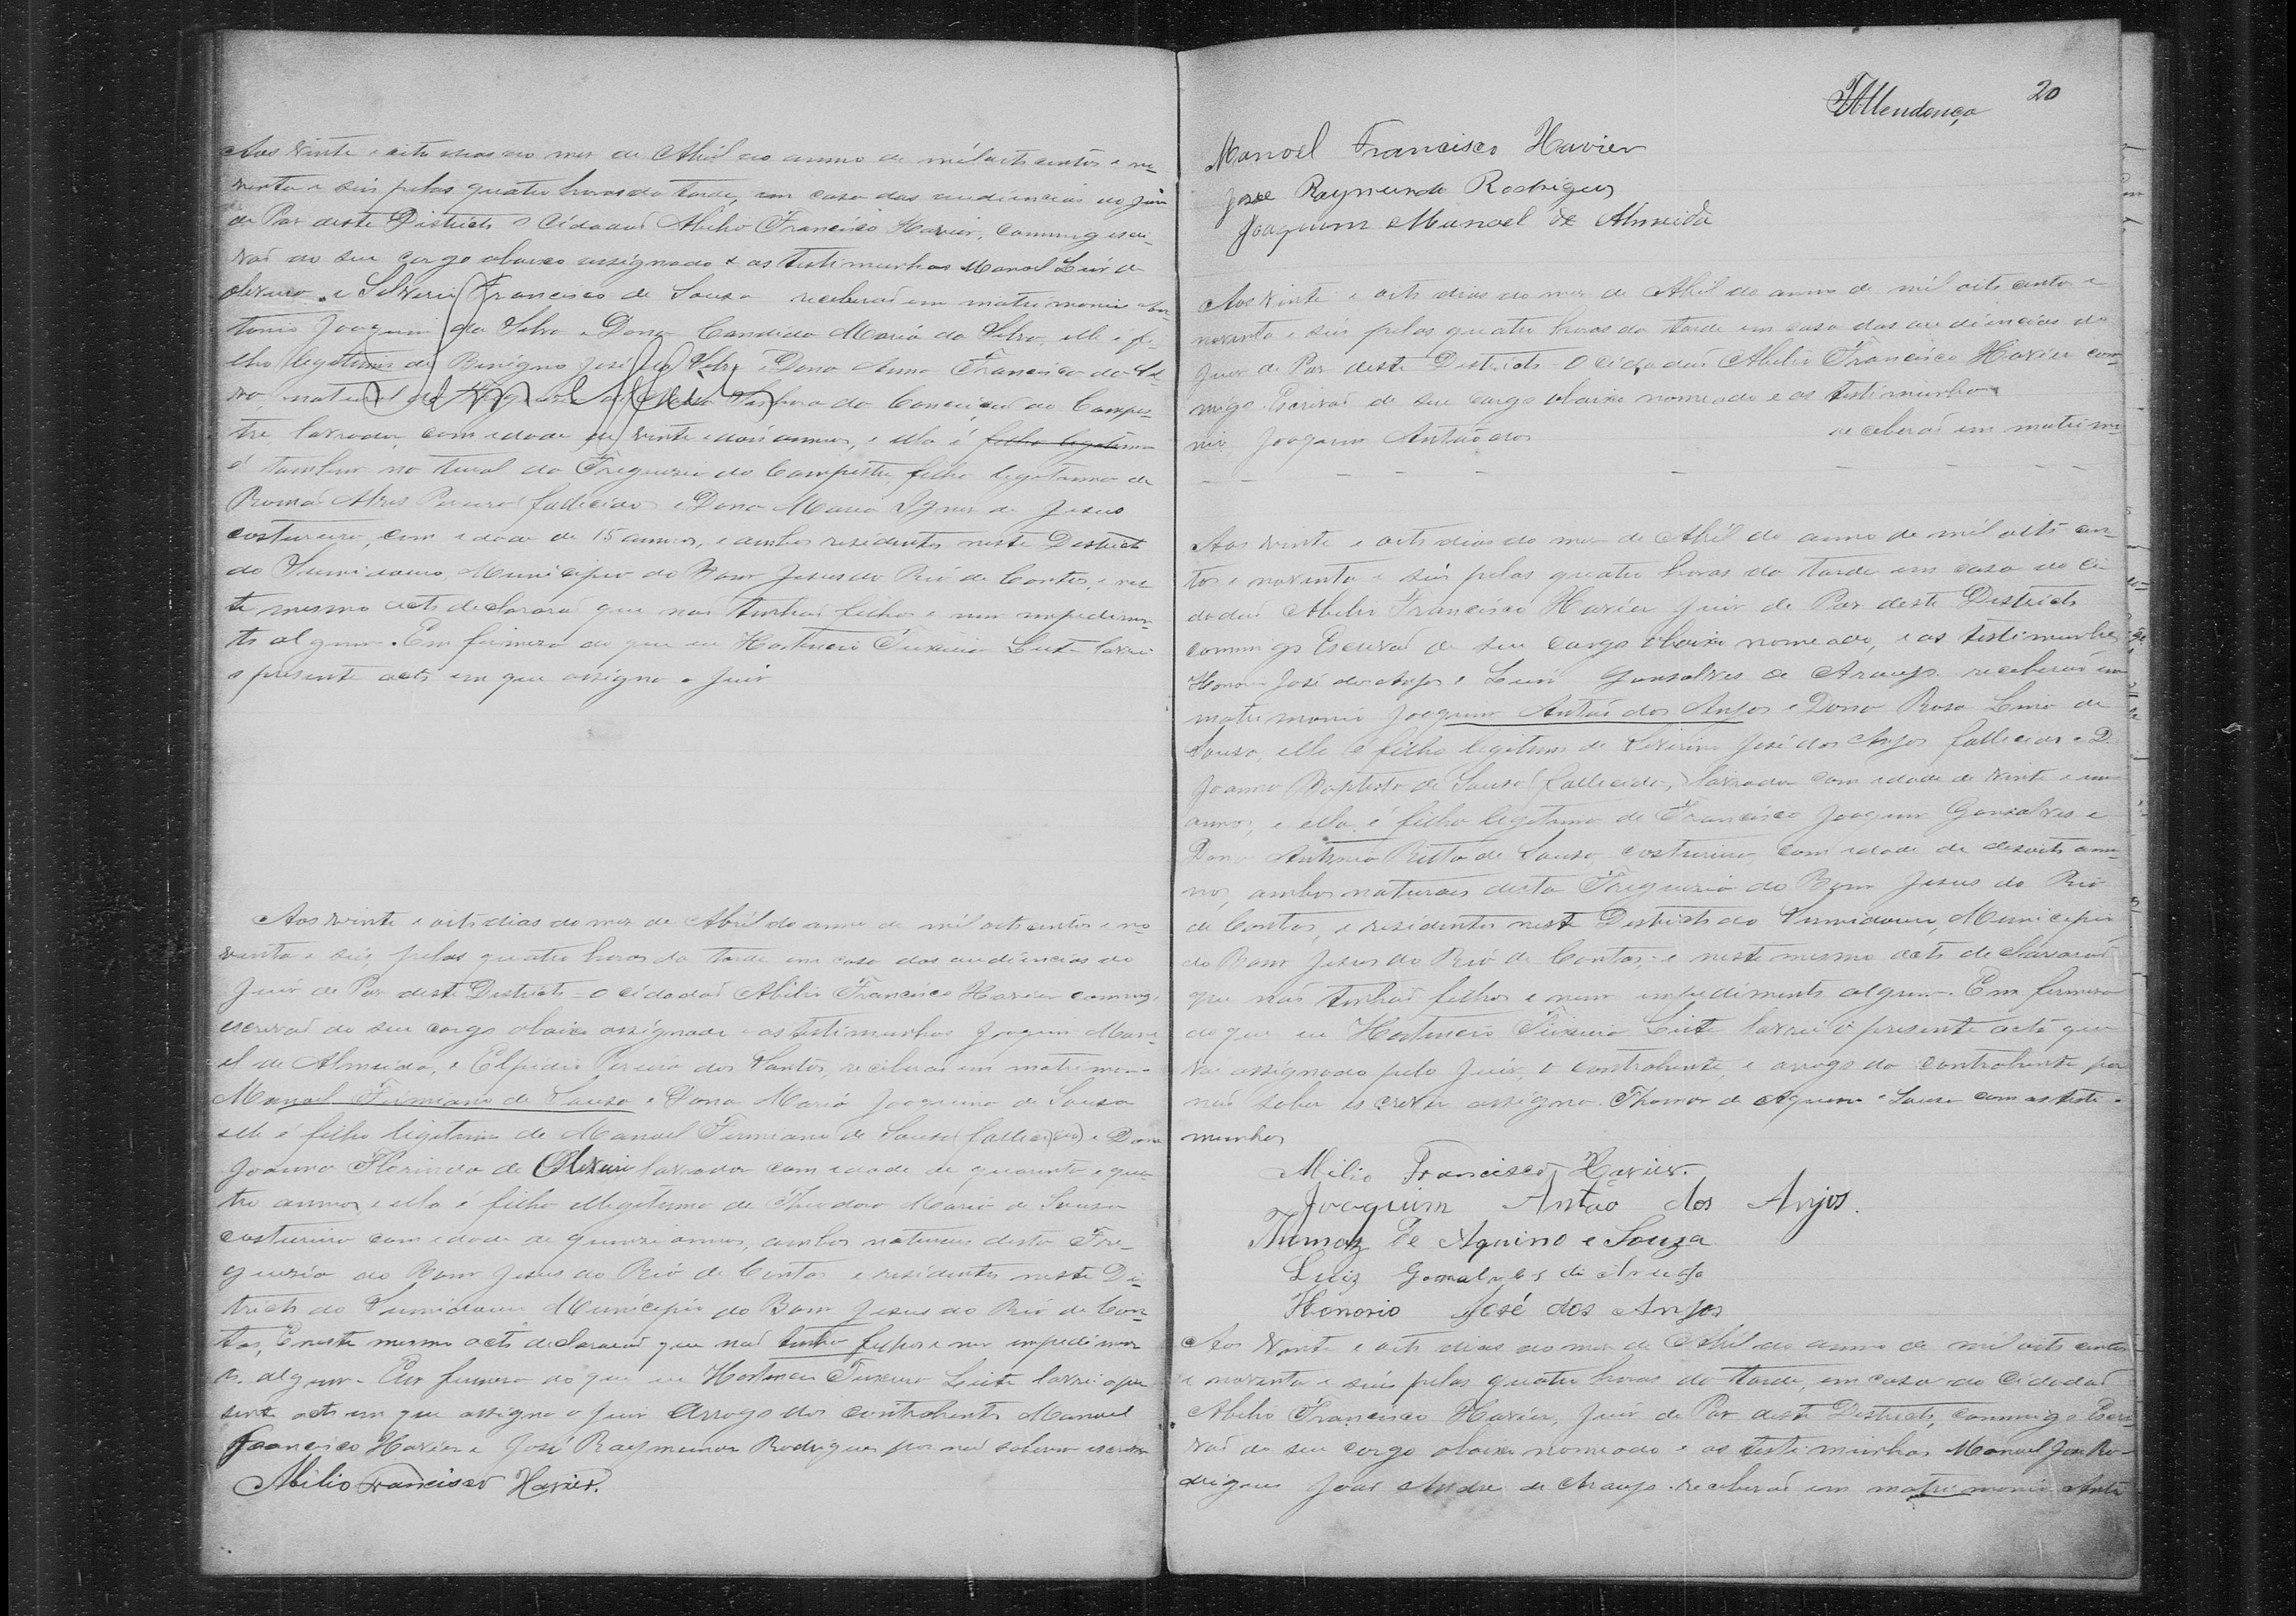 Aos vinte e oito dias do mez de Abril do anno de mil oito centos e no-
venta e seis pelas quatro horas da tarde, em casa das audiencias do Juiz
de Paz deste Districto o Cidadaõ Abilio Francisco Xavier, commigo escri-
vaõ do seu cargo abaixo assignado e as testimunhas Manoel Luiz de
Oliveira e Silverio Francisco de Sousa receberaõ em matrimonio An-
tonio Joaquim da Silva e Dona Candida Maria da Silva, elle é fi-
lho legitimo de Benigno José da Silva e Dona Anna Francisca da Sil-
va, natural da Freguezia de Nossa Senhora da Conceiçaõ do Campes-
tre, lavrador, com idade de vinte e dois annos, e ella é filha legitima
é tambem natural da Freguezia do Campestre, filha legitima de
Romaõ Alves Pereira fallecido e Dona Maria Ignez de Jesus
costureira, com idade de 15 annos, e ambos residentes neste Districto
do Sumidouro, Municipio do Bom Jesus do Rio de Contas, e nes-
te mesmo acto declararaõ que naõ tinhaõ filhos e nem impedimen-
to algum. Em firmeza do que eu Hortencio Teixeira Leite lavrei
o presente acto em que assigna o Juiz
Aos vinte e oito dias do mez de Abril do anno de mil oito centos e no-
venta e seis, pelas quatro horas da tarde em casa das audiencias do
Juiz de Paz deste Districto o cidadaõ Abilio Francisco Xavier commigo
escrivaõ do seu cargo abaixo assignado e as testimunhas Joaquim Mano-
el de Almeida, e Elpidio Pereira dos Santos, receberaõ em matrimonio
Manoel Firmiano de Sousa e Dona Maria Joaquina de Sousa
elle é filho legitimo de Manoel Firmiano de Sousa (fallecido) e Dona
Joanna Florinda de Oliveira lavrador com idade de quarenta e qua-
tro annos, e ella é filha illigitima de Theodora Maria de Sousa
costureira com idade de quinze annos, ambos naturaes desta Fre-
guezia do Bom Jesus do Rio de Contas e residentes neste Dis-
tricto do Sumidouro Municipio do Bom Jesus do Rio de Con-
tas, E neste mesmo acto declararaõ que naõ tinha filhos e nem impedimen-
to algum. Em firmeza do que eu Hortencio Teixeira Leite lavrei o pre-
sente acto em que assigna o Juiz Arrogo dos contrahentes Manoel
Francisco Xavier e José Raymundo Rodrigues por naõ saberem escrever
Abilio Francisco Xavier.
TMendonça 20
Manoel Francisco Xavier
José Raymundo Rodrigues
Joaquim Manoel de Almeida
Aos vinte e oito dias do mez de Abril do anno de mil oito centos e
noventa e seis pelas quatro horas da tarde em casa das audiencias do
Juiz de Paz deste Districto o cidadaõ Abilio Francisco Xavier com-
migo Escrivaõ de seu cargo abaixo nomeado e as testimunhas
receberaõ em matrimo-
nio Joaquim Antaõ dos
Aos vinte e oito dias do mez de Abril do anno de mil oito cen-
tos e noventa e seis pelas quatro horas da tarde em casa do Ci-
dadaõ Abilio Francisco Xavier Juiz de Paz deste Districto
commigo Escrivaõ de seu cargo abaixo nomeado, e as testimunhas
Honorio José dos Anjos e Luiz Gonsalves de Araujo receberaõ em
matrimonio Joaquim Antaõ dos Anjos e Dona Rosa Lina de
Sousa, elle é filho legitimo de Severino José dos Anjos fallecido e D.
Joanna Baptista de Sousa (fallecida,) lavrador com idade de vinte e um
annos, e ella é filha legitima de Francisco Joaquim Gonsalves e
Dona Antonia Ritta de Sousa, costureira, com idade de desoito an-
nos, ambos naturaes desta Freguezia do Bom Jesus do Rio
de Contas, e residentes neste Districto do Sumidouro, Municipio
do Bom Jesus do Rio de Contas, e neste mesmo acto declararaõ
que naõ tinhaõ filhos e nem impedimento algum. Em firmeza
do que eu Hortencio Teixeira Leite lavrei o presente acto que
vai assignado pelo Juiz, o contrahente, e arrogo da contrahente por
naõ saber escrever assigna Thomaz de Aquino e Sousa com as teste-
munhas
Abilio Francisco Xavier.
Joaquim Antão dos Anjos.
Tumaz de Aquino e Souza
Luiz Gonsalves di Araujo
Honorio José dos Anjos
Aos vinte e oito dias do mez de Abril do anno de mil oito centos
e noventa e seis pelas quatro horas da tarde, em casa do Cidadaõ
Abilio Francisco Xavier, Juiz de Paz deste Districto, commigo Escri-
vaõ do seu cargo abaixo nomeado e as testimunhas Manoel José Ro-
drigues Joaõ Andre de Araujo receberaõ em matrimonio Anto